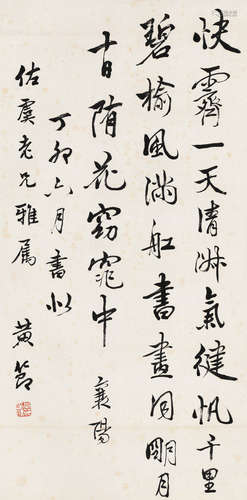 快霽一天清淑氣健帆千里
碧榆風滿舡書畫同明月
十日隋花窈窕中 襄陽
丁卯六月書似
佐虞老兄雅屬 黃節